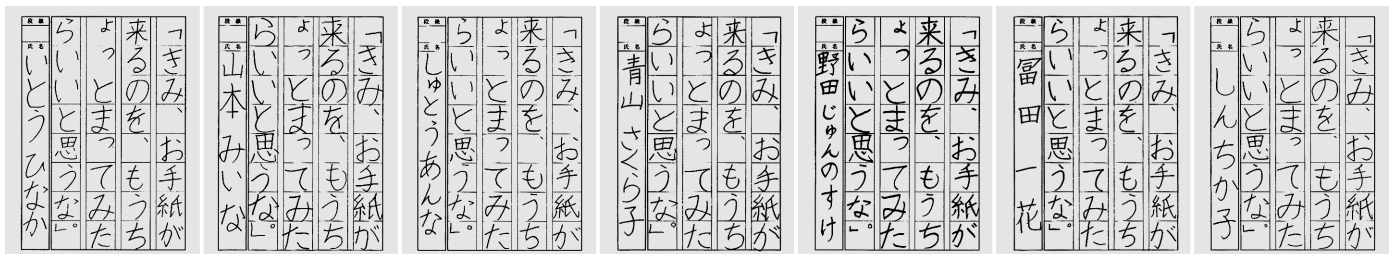 「きみ、お手紙が
来るのを、もうち
ょっとまってみた
らいいと思うな。」
段級
氏名 いとう ひなか
「きみ、お手紙が
来るのを、もうち
ょっとまってみた
らいいと思うな。」
段級
氏名 山本 みいな
「きみ、お手紙が
来るのを、もうち
ょっとまってみた
らいいと思うな。」
段級
氏名 しゅとうあんな
「きみ、お手紙が
来るのを、もうち
ょっとまってみた
らいいと思うな。」
段級
氏名 青山 さくら子
「きみ、お手紙が
来るのを、もうち
ょっとまってみた
らいいと思うな。」
段級
氏名 野田じゅんのすけ
「きみ、お手紙が
来るのを、もうち
ょっとまってみた
らいいと思うな。」
段級
氏名 冨田 一花
「きみ、お手紙が
来るのを、もうち
ょっとまってみた
らいいと思うな。」
段級
氏名 しんちか子